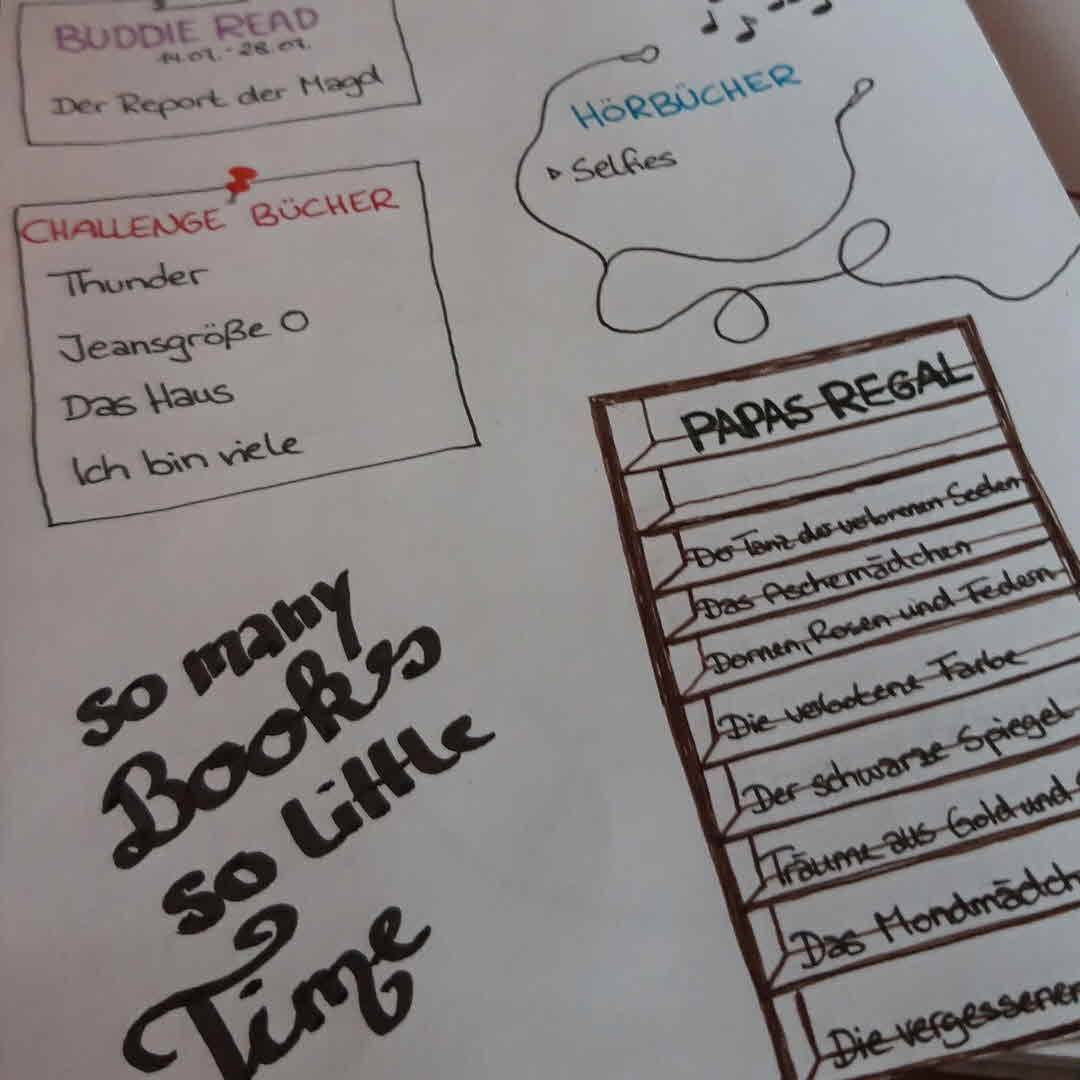 BUDDIE READ
14.07.-28.07.
Der Report der Magd
CHALLENGE BÜCHER
Thunder
Jeansgröße 0
Das Haus
Ich bin viele
HÖRBÜCHER
Selfies
PAPAS REGAL
Der Tanz der verlorenen Seelen
Das Aschemädchen
Dornen, Rosen und Federn
Die verbotene Farbe
Der schwarze Spiegel
Träume aus Gold und
Das Mondmädch
Die vergessenen
so many
Books
so little
Time